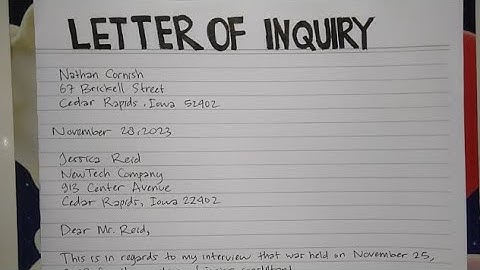 LETTER OF INQUIRY
Nathan Cornish
67 Brickell Street
Cedar Rapids, Iowa 52402
November 28, 2023
Jessica Reid
NewTech Company
913 Center Avenue
Cedar Rapids, Iowa 22402
Dear Mr. Reid,
This is in regards to my interview that was held on November 25,